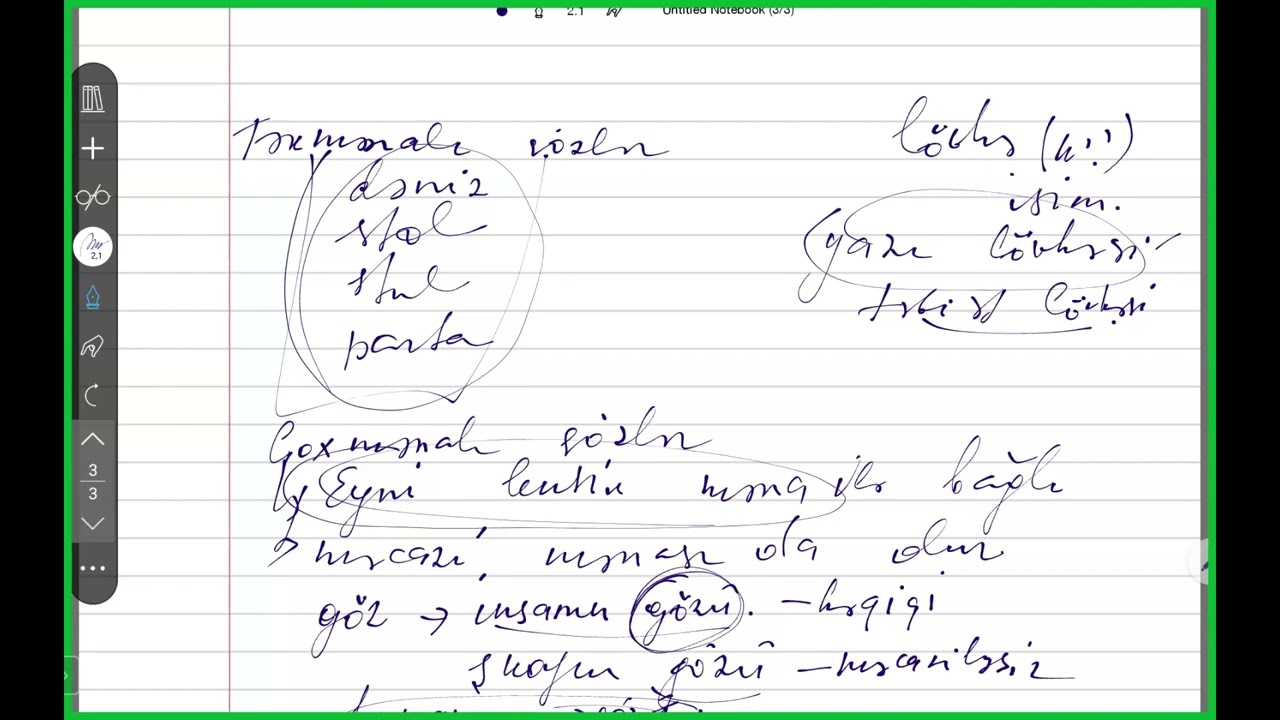 2.1 Untitled Notebook (3/3)
Təkmənalı sözlər
dəniz
stol
stul
parta
lövhə (k!!)
isim.
yazı lövhəsi
təbiət lövhəsi
Çoxmənalı sözlər
Eyni leksik məna ilə bağlı
→ məcazi, mənası da olur
göz → insanın gözü. – həqiqi
şkafın gözü – məcaziləşir
2,1
3
3